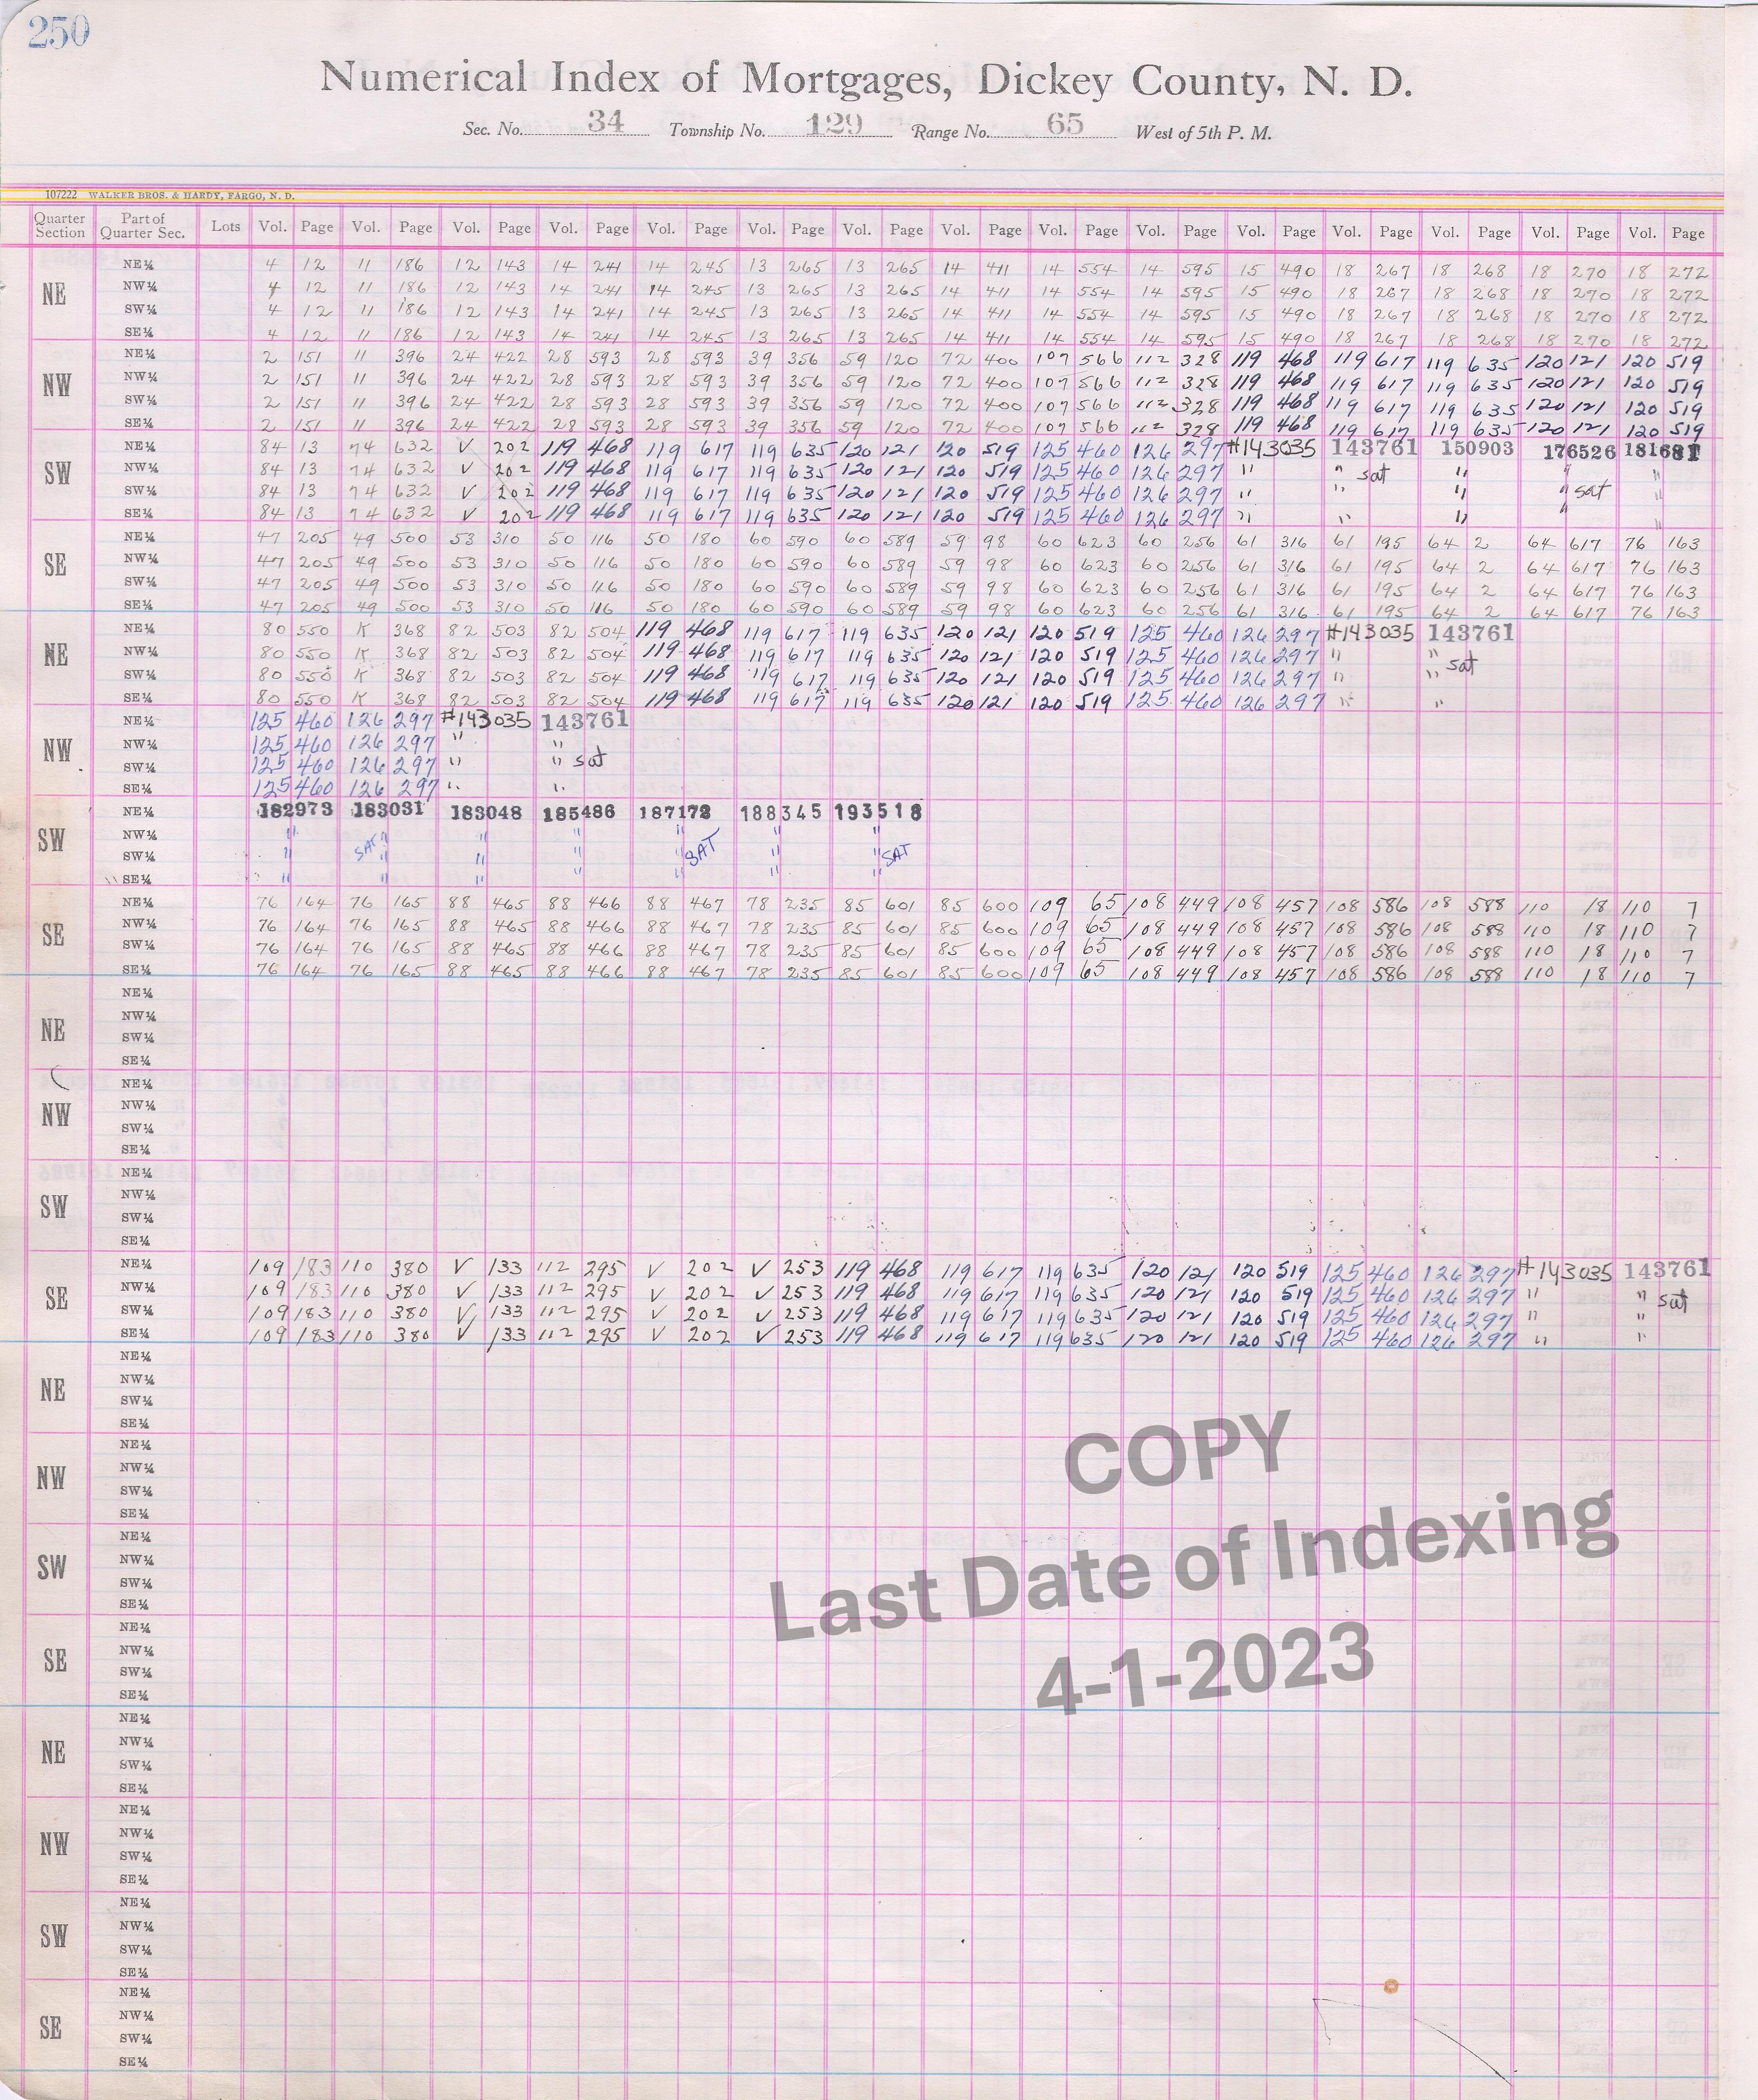 250
Numerical Index of Mortgages, Dickey County, N. D.
Sec. No. 34 Township No. 129 Range No. 65 West of 5th P. M.
107222 WALKER BROS. & HARDY, FARGO, N. D.
Quarter Section Part of Quarter Sec. Lots Vol. Page Vol. Page Vol. Page Vol. Page Vol. Page Vol. Page Vol. Page Vol. Page Vol. Page Vol. Page Vol. Page Vol. Page Vol. Page Vol. Page Vol. Page
NE
NE¼ 4 12 11 186 12 143 14 241 14 245 13 265 13 265 14 411 14 554 14 595 15 490 18 267 18 268 18 270 18 272
NW¼ 4 12 11 186 12 143 14 241 14 245 13 265 13 265 14 411 14 554 14 595 15 490 18 267 18 268 18 270 18 272
SW¼ 4 12 11 186 12 143 14 241 14 245 13 265 13 265 14 411 14 554 14 595 15 490 18 267 18 268 18 270 18 272
SE¼ 4 12 11 186 12 143 14 241 14 245 13 265 13 265 14 411 14 554 14 595 15 490 18 267 18 268 18 270 18 272
NW
NE¼ 2 151 11 396 24 422 28 593 28 593 39 356 59 120 72 400 107 566 112 328 119 468 119 617 119 635 120 121 120 519
NW¼ 2 151 11 396 24 422 28 593 28 593 39 356 59 120 72 400 107 566 112 328 119 468 119 617 119 635 120 121 120 519
SW¼ 2 151 11 396 24 422 28 593 28 593 39 356 59 120 72 400 107 566 112 328 119 468 119 617 119 635 120 121 120 519
SE¼ 2 151 11 396 24 422 28 593 28 593 39 356 59 120 72 400 107 566 112 328 119 468 119 617 119 635 120 121 120 519
SW
NE¼ 84 13 74 632 V 202 119 468 119 617 119 635 120 121 120 519 125 460 126 297 #143035 143761 150903 176526 181681
NW¼ 84 13 74 632 V 202 119 468 119 617 119 635 120 121 120 519 125 460 126 297 " " sat " " "
SW¼ 84 13 74 632 V 202 119 468 119 617 119 635 120 121 120 519 125 460 126 297 " " " " sat "
SE¼ 84 13 74 632 V 202 119 468 119 617 119 635 120 121 120 519 125 460 126 297 " " " " "
SE
NE¼ 47 205 49 500 53 310 50 116 50 180 60 590 60 589 59 98 60 623 60 256 61 316 61 195 64 2 64 617 76 163
NW¼ 47 205 49 500 53 310 50 116 50 180 60 590 60 589 59 98 60 623 60 256 61 316 61 195 64 2 64 617 76 163
SW¼ 47 205 49 500 53 310 50 116 50 180 60 590 60 589 59 98 60 623 60 256 61 316 61 195 64 2 64 617 76 163
SE¼ 47 205 49 500 53 310 50 116 50 180 60 590 60 589 59 98 60 623 60 256 61 316 61 195 64 2 64 617 76 163
NE
NE¼ 80 550 K 368 82 503 82 504 119 468 119 617 119 635 120 121 120 519 125 460 126 297 #143035 143761
NW¼ 80 550 K 368 82 503 82 504 119 468 119 617 119 635 120 121 120 519 125 460 126 297 " "
SW¼ 80 550 K 368 82 503 82 504 119 468 119 617 119 635 120 121 120 519 125 460 126 297 " " sat
SE¼ 80 550 K 368 82 503 82 504 119 468 119 617 119 635 120 121 120 519 125 460 126 297 " "
NW
NE¼ 125 460 126 297 #143035 143761
NW¼ 125 460 126 297 " "
SW¼ 125 460 126 297 " " sat
SE¼ 125 460 126 297 " "
SW
NE¼ 182973 183031 183048 185486 187178 188345 193518
NW¼ " " " " " " "
SW¼ " SAT " " " " SAT " " SAT
SE¼ " " " " " " "
SE
NE¼ 76 164 76 165 88 465 88 466 88 467 78 235 85 601 85 600 109 65 108 449 108 457 108 586 108 588 110 18 110 7
NW¼ 76 164 76 165 88 465 88 466 88 467 78 235 85 601 85 600 109 65 108 449 108 457 108 586 108 588 110 18 110 7
SW¼ 76 164 76 165 88 465 88 466 88 467 78 235 85 601 85 600 109 65 108 449 108 457 108 586 108 588 110 18 110 7
SE¼ 76 164 76 165 88 465 88 466 88 467 78 235 85 601 85 600 109 65 108 449 108 457 108 586 108 588 110 18 110 7
NE
NE¼
NW¼
SW¼
SE¼
NW
NE¼
NW¼
SW¼
SE¼
SW
NE¼
NW¼
SW¼
SE¼
SE
NE¼ 109 183 110 380 V 133 112 295 V 202 V 253 119 468 119 617 119 635 120 121 120 519 125 460 126 297 #143035 143761
NW¼ 109 183 110 380 V 133 112 295 V 202 V 253 119 468 119 617 119 635 120 121 120 519 125 460 126 297 " " sat
SW¼ 109 183 110 380 V 133 112 295 V 202 V 253 119 468 119 617 119 635 120 121 120 519 125 460 126 297 " "
SE¼ 109 183 110 380 V 133 112 295 V 202 V 253 119 468 119 617 119 635 120 121 120 519 125 460 126 297 " "
NE
NE¼
NW¼
SW¼
SE¼
NW
NE¼
NW¼
SW¼
SE¼
SW
NE¼
NW¼
SW¼
SE¼
SE
NE¼
NW¼
SW¼
SE¼
NE
NE¼
NW¼
SW¼
SE¼
NW
NE¼
NW¼
SW¼
SE¼
SW
NE¼
NW¼
SW¼
SE¼
SE
NE¼
NW¼
SW¼
SE¼
COPY
Last Date of Indexing
4-1-2023